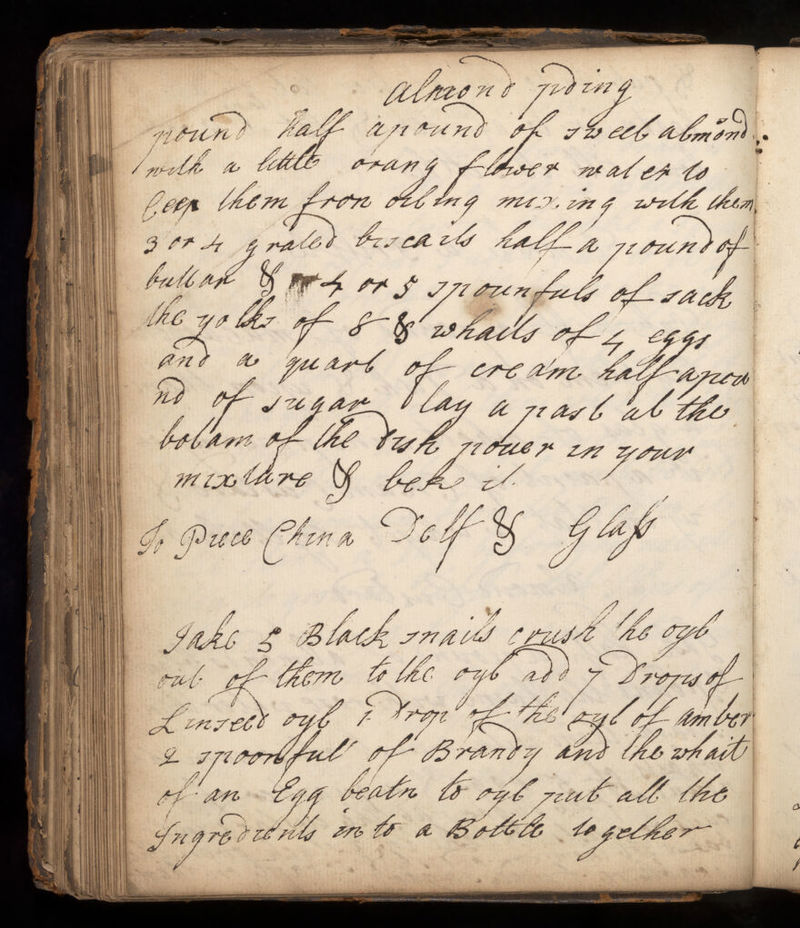 almond pding
pound half apound of sweet almond
with a little orang flower water to
keep them from oiling mixing with them
3 or 4 grated biscails half a pound of
buttar & 4 or 5 spounfuls of sack
the yolks of 8 & whaits of 4 eggs
and a quart of cream half apou
nd of sugar lay a past at the
botam of the dish pouer in your
mixture & bek it
To Piece China Delf & Glass
Take 5 Black snails crush the oyl
out of them to the oyl add 7 Drops of
Linseed oyl 1 Drop of the oyl of amber
2 spoonfull of Brandy and the whait
of an Egg beatn to oyl put all the
Ingredients in to a Bottle together